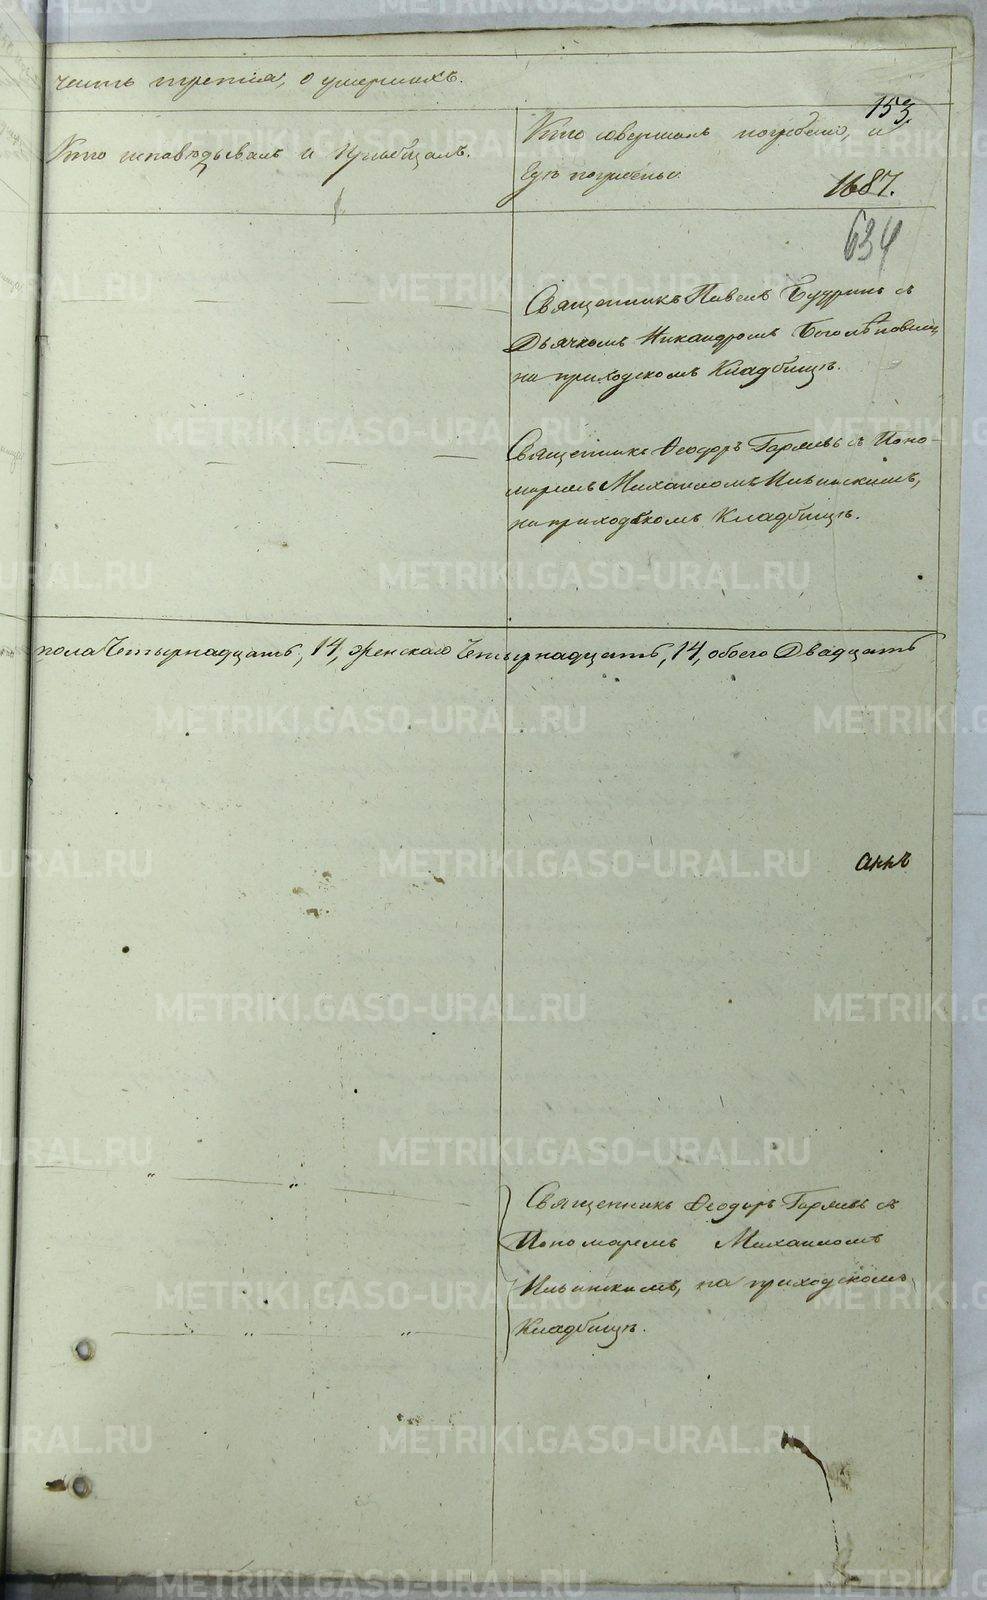 часть третія, о умершихъ.
153.
Кто исповѣдывалъ и пріобщалъ.
Кто совершалъ погребеніе, и
гдѣ погребены.
1687.
634
Священникъ Павелъ Будринъ съ
Дьячкомъ Никандромъ Боголѣповымъ,
на приходскомъ Кладбищѣ.
Священникъ Ѳеодоръ Горяевъ съ Поно-
маремъ Михаиломъ Ильинскимъ,
на приходскомъ Кладбищѣ.
пола Четырнадцать, 14, женскаго Четырнадцать, 14, обоего Двадцать
аннъ
Священникъ Ѳеодоръ Горяевъ съ
Пономаремъ Михаиломъ
Ильинскимъ, на приходскомъ
Кладбищѣ.
METRIKI.GASO-URAL.RU